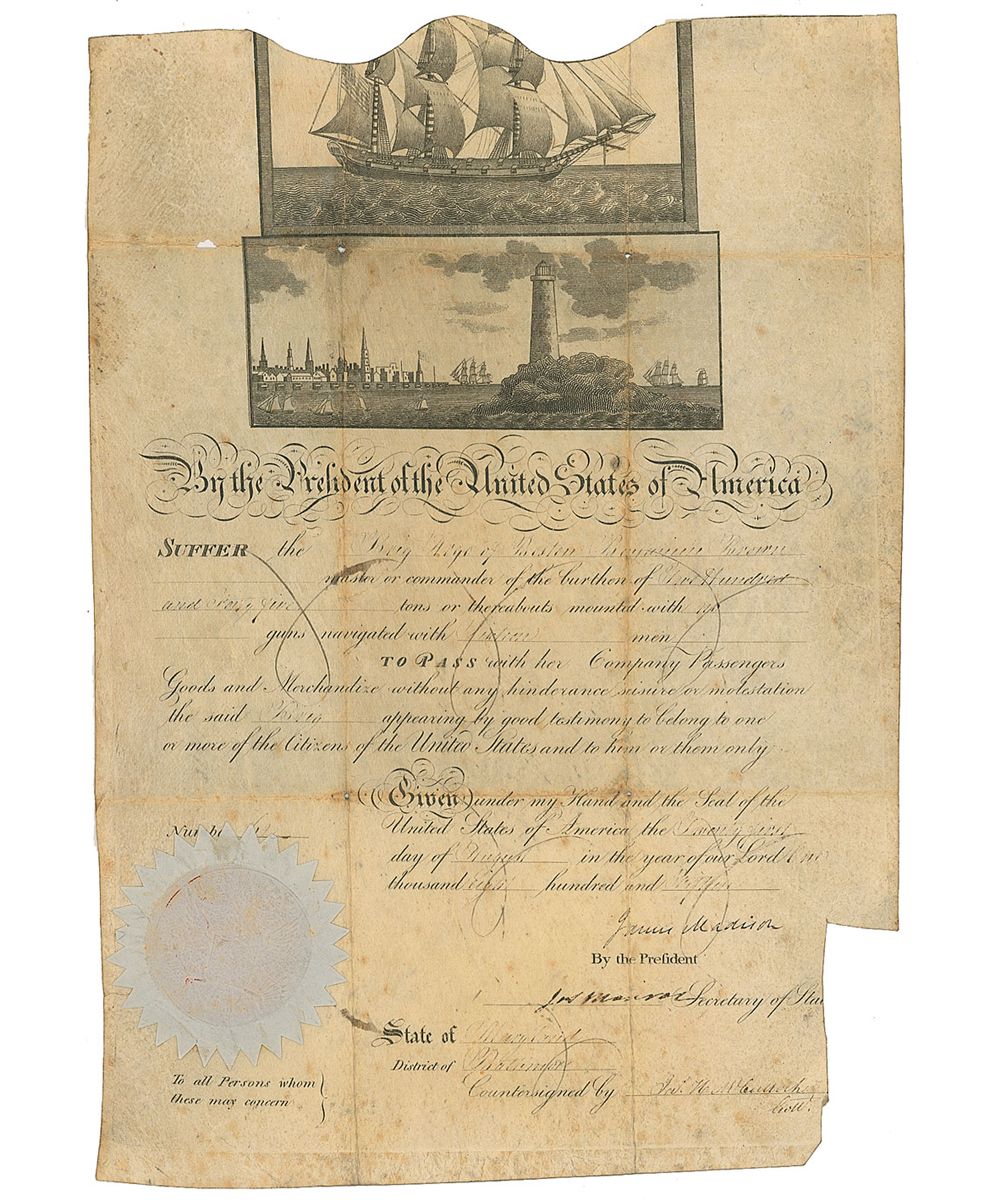 By the President of the United States of America
SUFFER the Brig of Boston Benjamin Brown
master or commander of the burthen of Two Hundred
and five tons or thereabouts mounted with no
guns navigated with men
TO PASS with her Company Passengers
Goods and Merchandize without any hinderance seisure or molestation
the said Brig appearing by good testimony to belong to one
or more of the Citizens of the United States and to him or them only
Given under my Hand and the Seal of the
United States of America the Twenty first
day of August in the year of our Lord One
thousand eight hundred and fifteen
Number
James Madison
By the Preſident
Jas Monroe Secretary of Sta
State of Maryland
District of Baltimore
Countersigned by Jas. H. McCulloch
Coll.
To all Persons whom
these may concern